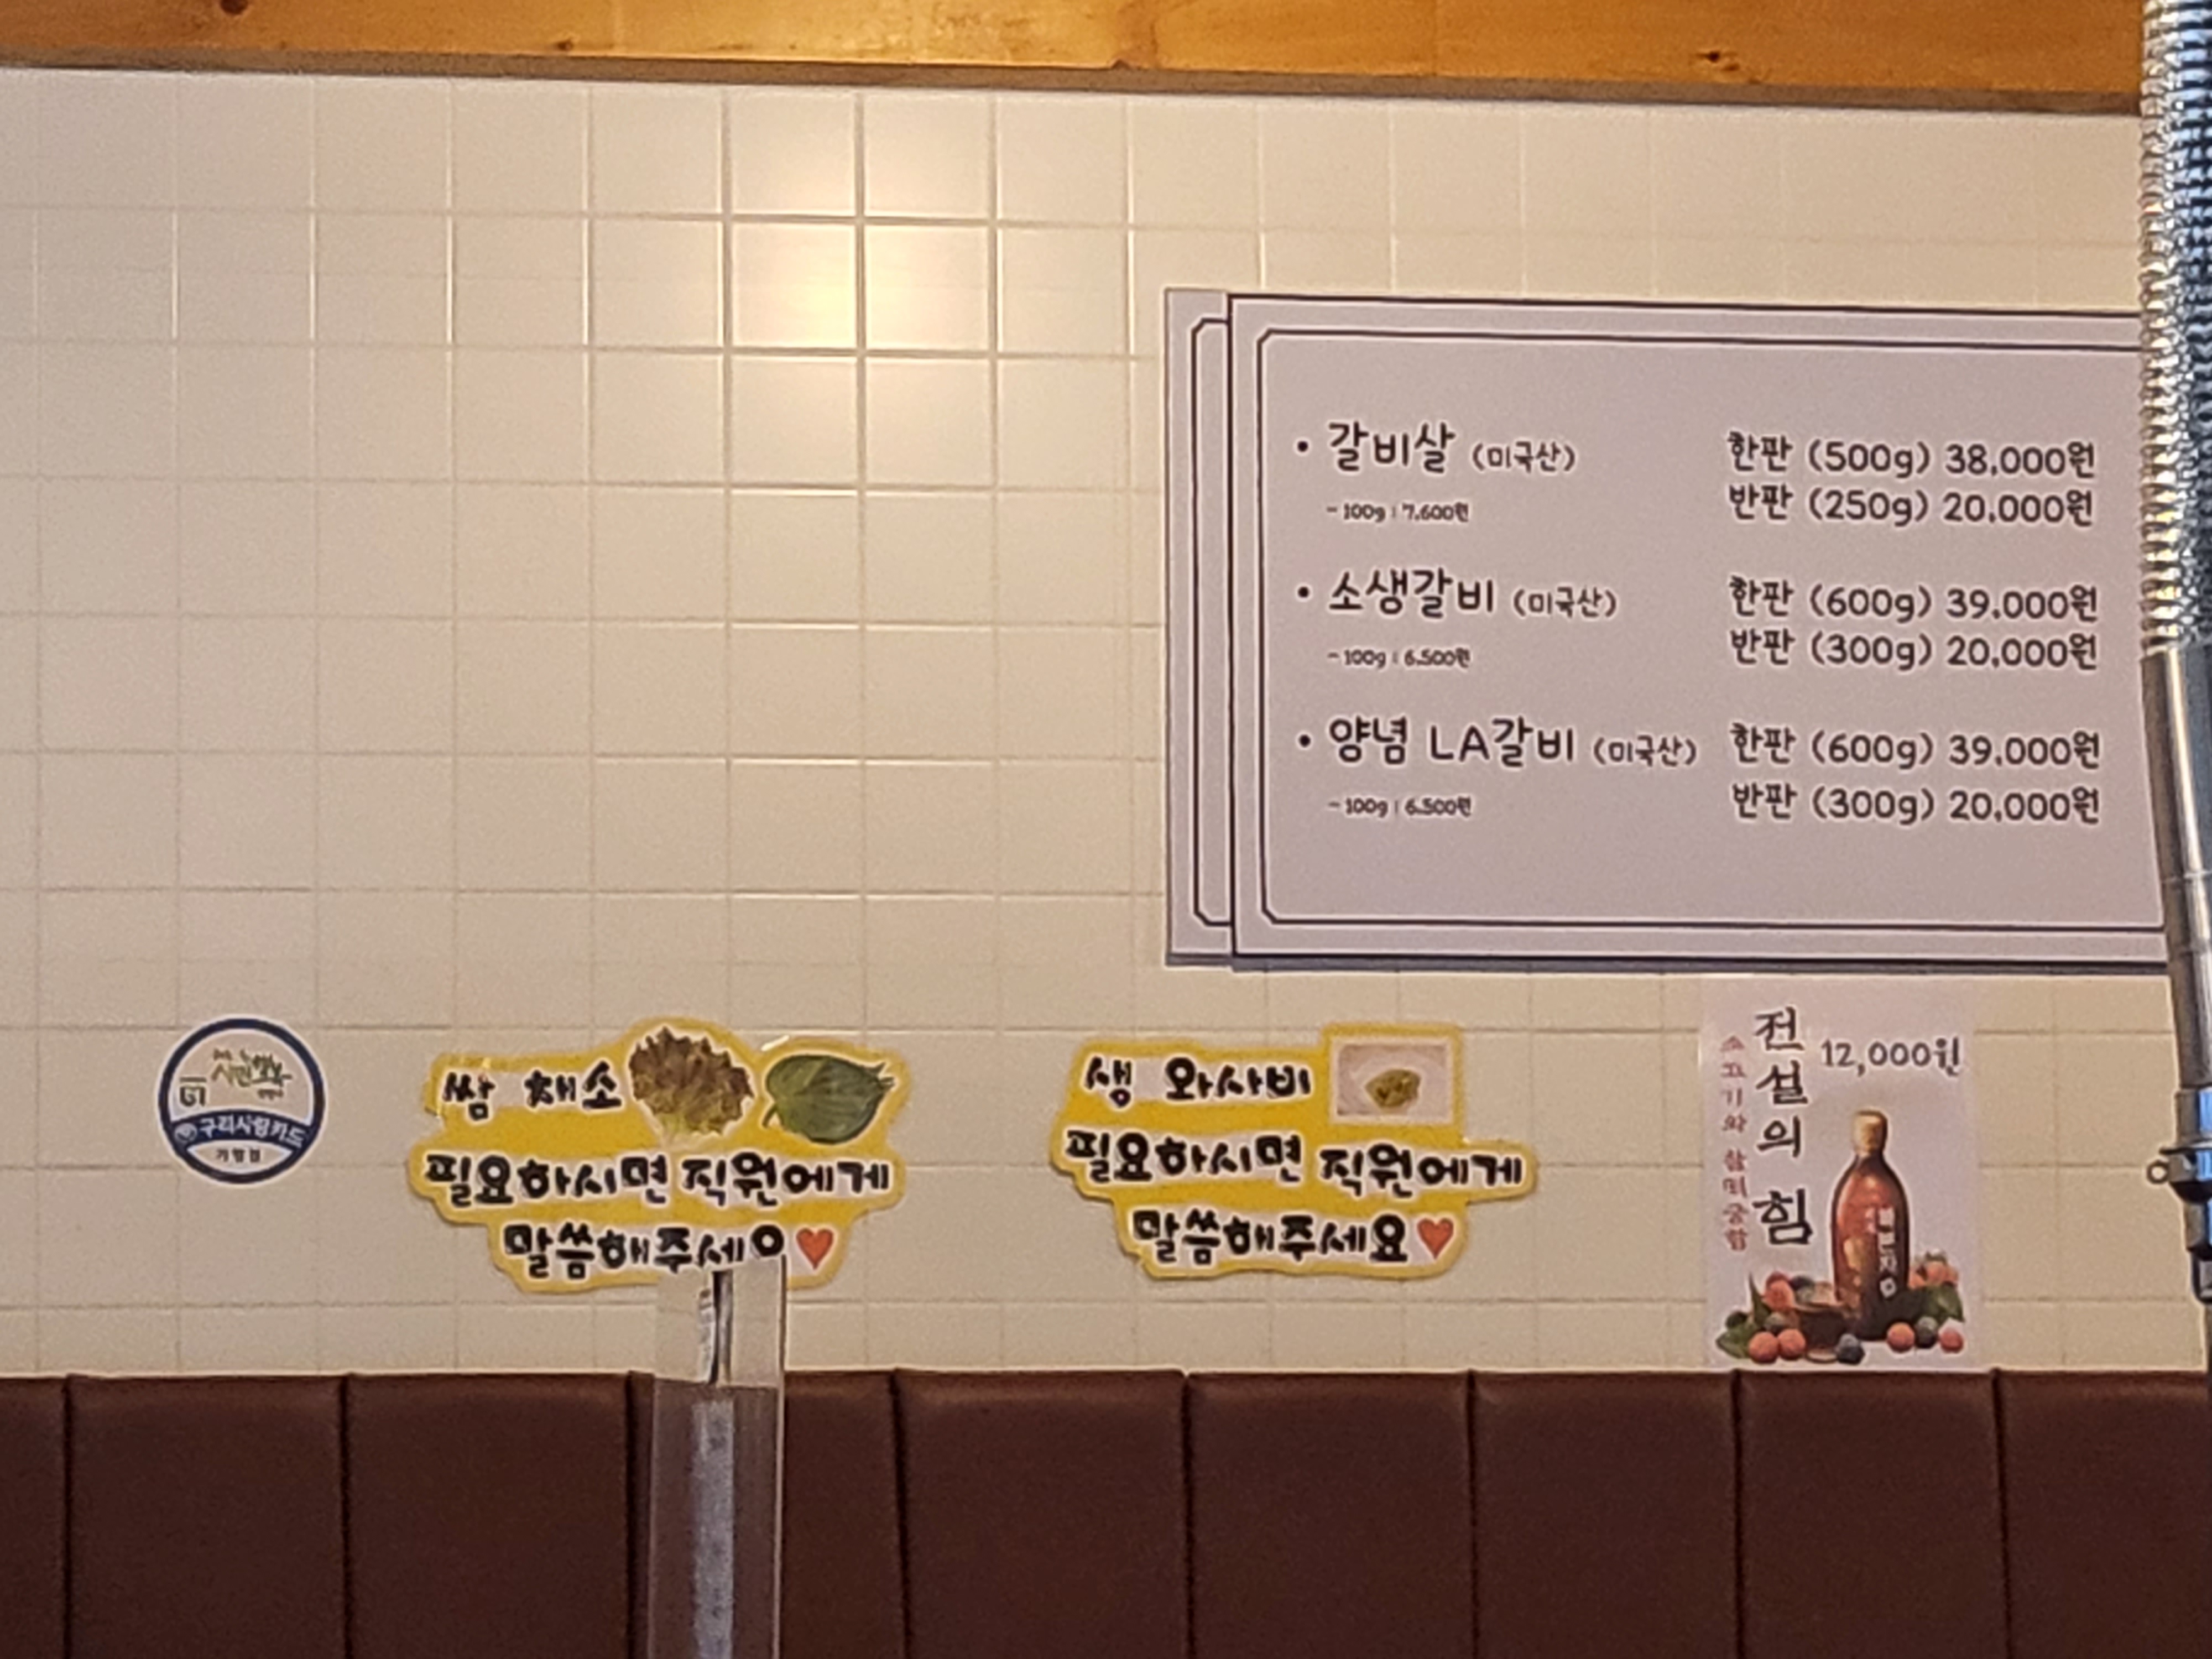 • 갈비살 (미국산) 한판 (500g) 38,000원
- 100g : 7,600원 반판 (250g) 20,000원
• 소생갈비 (미국산) 한판 (600g) 39,000원
- 100g : 6,500원 반판 (300g) 20,000원
• 양념 LA갈비 (미국산) 한판 (600g) 39,000원
- 100g : 6,500원 반판 (300g) 20,000원
구리사랑카드
가맹점
쌈 채소
필요하시면 직원에게
말씀해주세요
생 와사비
필요하시면 직원에게
말씀해주세요
전설의 힘
12,000원
소고기와 찰떡궁합